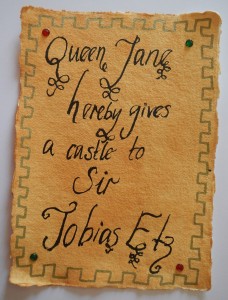 Queen Jane
hereby gives
a castle to
Sir
Tobias Etz